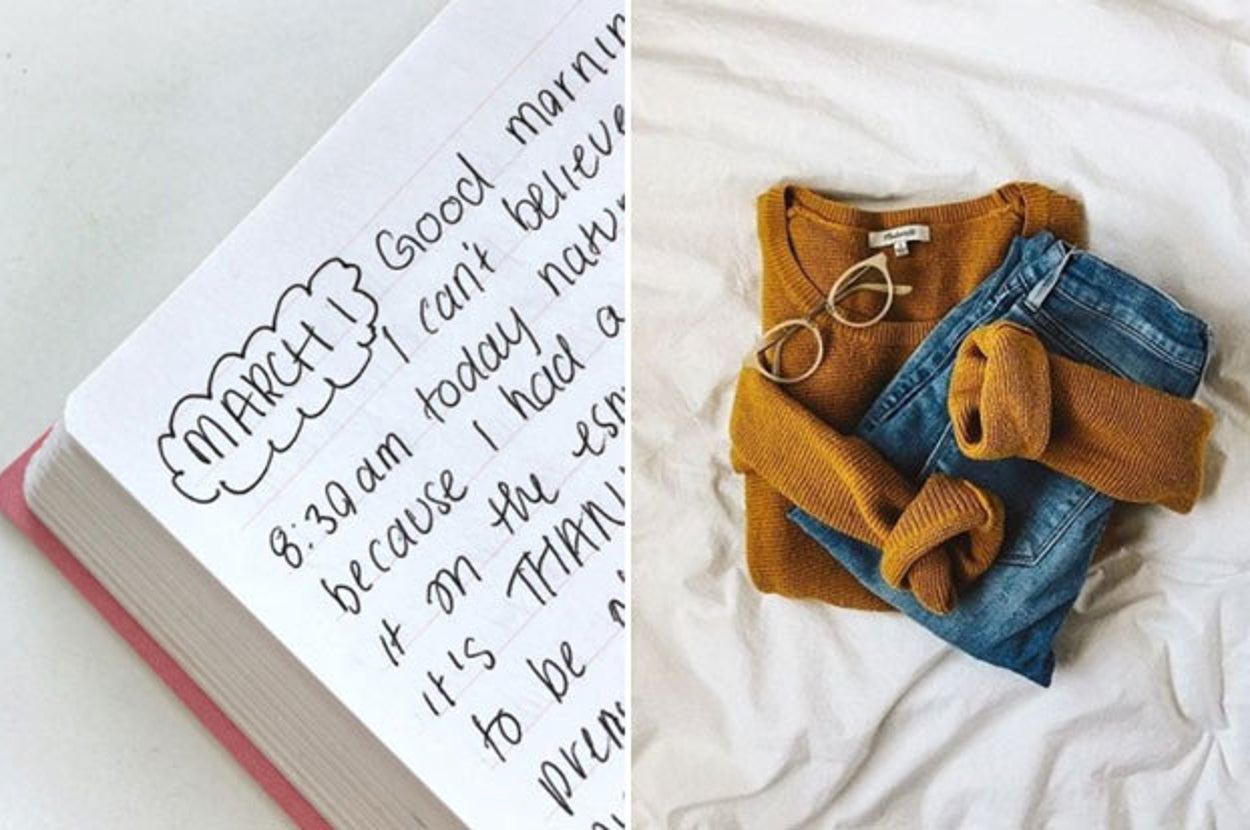 MARCH 1 Good mornin
I can't believe
8:30am today natur
because I had a
it on the
it's THAN
to be
Madewell